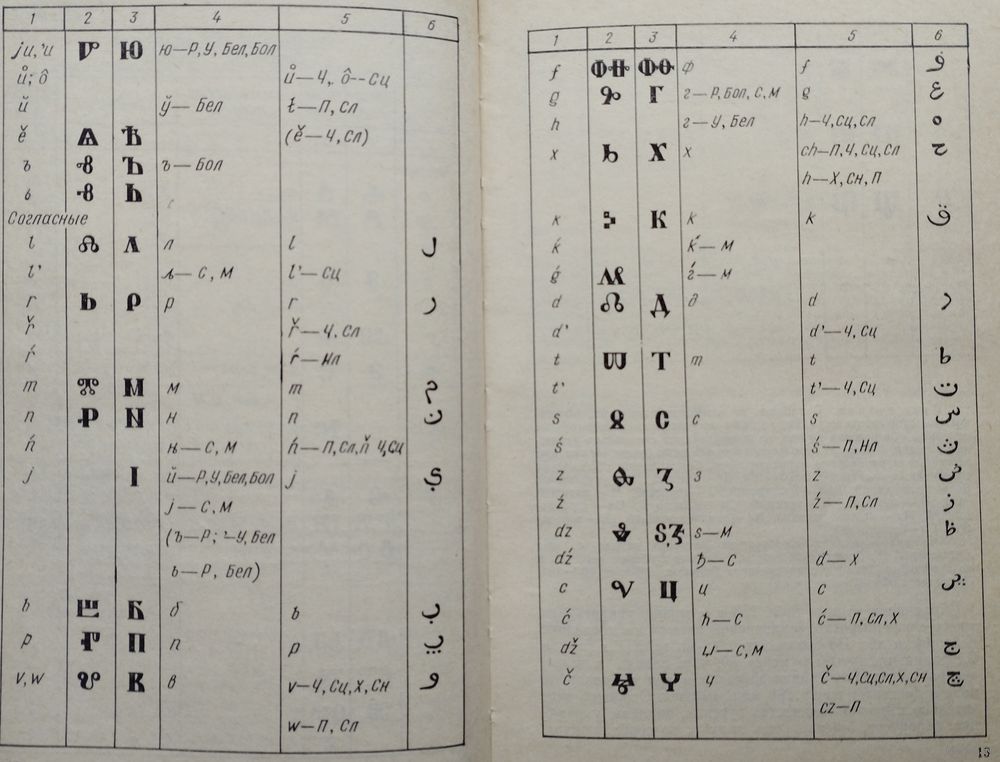 1 2 3 4 5 6
ju, 'u Ⱓ Ю ю—Р, У, Бел, Бол
ů; ô ů—Ч, ô—Сц
ŭ ў—Бел ł—П, Сл
ě Ⱑ Ѣ (ě—Ч, Сл)
ъ Ⱏ Ъ ъ—Бол
ь Ⱐ Ь
Согласные
l Ⰾ Л л l ل
l' љ—С, М l'—Сц
r Ⱃ Р р r ر
ř ř—Ч, Сл
ŕ ŕ—Нл
m Ⰿ М м m م
n Ⱀ N н n ن
ń њ—С, М ń—П, Сл, ň Ч, Сц
j І й—Р, У, Бел, Бол j ي
ј—С, М
(ъ—Р; '—У, Бел
ь—Р, Бел)
b Ⰱ Б б b ب
p Ⱂ П п p پ
v, w Ⰲ В в v—Ч, Сц, Х, Сн و
w—П, Сл
1 2 3 4 5 6
f ⰗⰘ ФѲ ф f ف
g Ⰳ Г г—Р, Бол, С, М g ع
h г—У, Бел h—Ч, Сц, Сл ه
x Ⱈ Х х ch—П, Ч, Сц, Сл ح
h—Х, Сн, П
к Ⰽ К к k ق
ḱ ќ—М
ǵ Ⰼ ѓ—М
d Ⰴ Д д d د
d' d'—Ч, Сц
t Ⱅ Т т t ط
t' t'—Ч, Сц
s Ⱄ С с s س
ś ś—П, Нл
z Ⰸ З з z
ź ź—П, Сл ز
dz Ⰷ Ѕ,З ѕ—М ظ
dź ђ—С d—Х
c Ⱌ Ц ц c
ć ћ—С ć—П, Сл, Х
dž џ—С, М چ
č Ⱍ Ч ч č—Ч, Сц, Сл, Х, Сн
cz—П
13